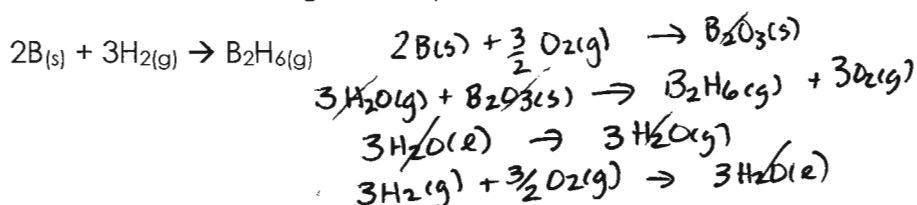 2B(s) + 3H₂(g) → B₂H₆(g)
2B(s) + 3/2 O₂(g) → B₂O₃(s)
3H₂O(g) + B₂O₃(s) → B₂H₆(g) + 3O₂(g)
3H₂O(l) → 3H₂O(g)
3H₂(g) + 3/2 O₂(g) → 3H₂O(l)